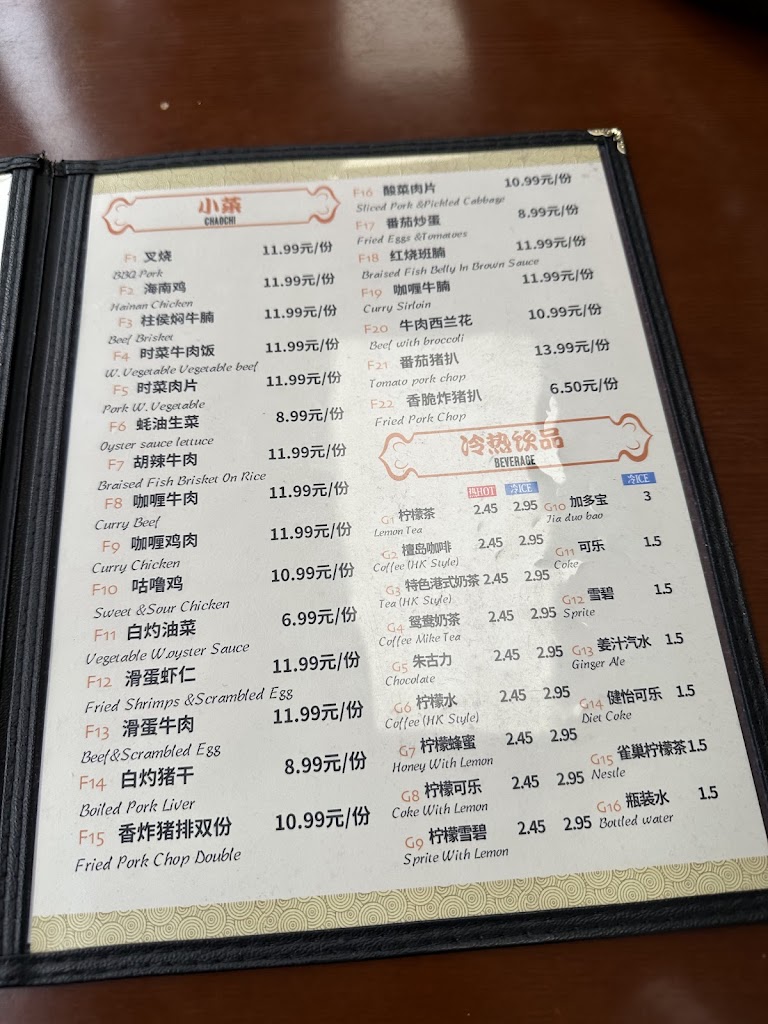 小菜
CHAOCHI
F1 叉烧 11.99元/份
BBQ Pork
F2 海南鸡 11.99元/份
Hainan Chicken
F3 柱侯焖牛腩 11.99元/份
Beef Brisket
F4 时菜牛肉饭 11.99元/份
W.Vegetable Vegetable beef
F5 时菜肉片 11.99元/份
Pork W.Vegetable
F6 蚝油生菜 8.99元/份
Oyster sauce lettuce
F7 胡辣牛肉 11.99元/份
Braised Fish Brisket On Rice
F8 咖喱牛肉 11.99元/份
Curry Beef
F9 咖喱鸡肉 11.99元/份
Curry Chicken
F10 咕噜鸡 10.99元/份
Sweet &Sour Chicken
F11 白灼油菜 6.99元/份
Vegetable W.oyster Sauce
F12 滑蛋虾仁 11.99元/份
Fried Shrimps &Scrambled Egg
F13 滑蛋牛肉 11.99元/份
Beef&Scrambled Egg
F14 白灼猪干 8.99元/份
Boiled Pork Liver
F15 香炸猪排双份 10.99元/份
Fried Pork Chop Double
F16 酸菜肉片 10.99元/份
Sliced Pork &Pickled Cabbage
F17 番茄炒蛋 8.99元/份
Fried Eggs &Tomatoes
F18 红烧班腩 11.99元/份
Braised Fish Belly In Brown Sauce
F19 咖喱牛腩 11.99元/份
Curry Sirloin
F20 牛肉西兰花 10.99元/份
Beef with broccoli
F21 番茄猪扒 13.99元/份
Tomato pork chop
F22 香脆炸猪扒 6.50元/份
Fried Pork Chop
冷热饮品
BEVERAGE
热HOT 冷ICE
G1 柠檬茶 2.45 2.95
Lemon Tea
G2 檀岛咖啡 2.45 2.95
Coffee (HK Style)
G3 特色港式奶茶 2.45 2.95
Tea (HK Style)
G4 鸳鸯奶茶 2.45 2.95
Coffee Mike Tea
G5 朱古力 2.45 2.95
Chocolate
G6 柠檬水 2.45 2.95
Coffee (HK Style)
G7 柠檬蜂蜜 2.45 2.95
Honey With Lemon
G8 柠檬可乐 2.45 2.95
Coke With Lemon
G9 柠檬雪碧 2.45 2.95
Sprite With Lemon
冷ICE
G10 加多宝 3
Jia duo bao
G11 可乐 1.5
Coke
G12 雪碧 1.5
Sprite
G13 姜汁汽水 1.5
Ginger Ale
G14 健怡可乐 1.5
Diet Coke
G15 雀巢柠檬茶 1.5
Nestle
G16 瓶装水 1.5
Bottled water